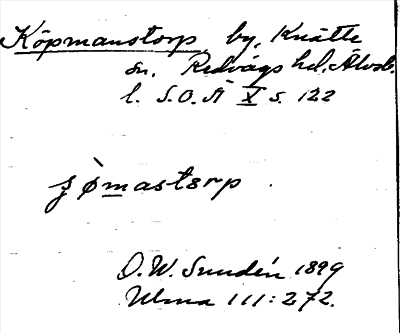 Köpmanstorp, by, Knätte
sn. Redvägs hd. Älvsb.
l. S.O.Ä X s. 122
ȷø̀mastorp.
D.W. Sundén 1899
Ulma 111:272.